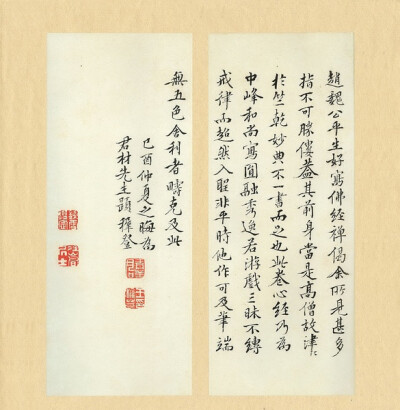 趙魏公平生好寫佛經禪偈余所見甚多
指不可勝僂蓋其前身當是高僧故津〻
於竺乾妙典不一書而之也此卷心經乃為
中峰和尚寫圓融秀逸若游戲三昧不縛
戒律而超然入聖非平時他作可及筆端
無五色舍利者疇克及此
己酉仲夏之晦為
君材先生題